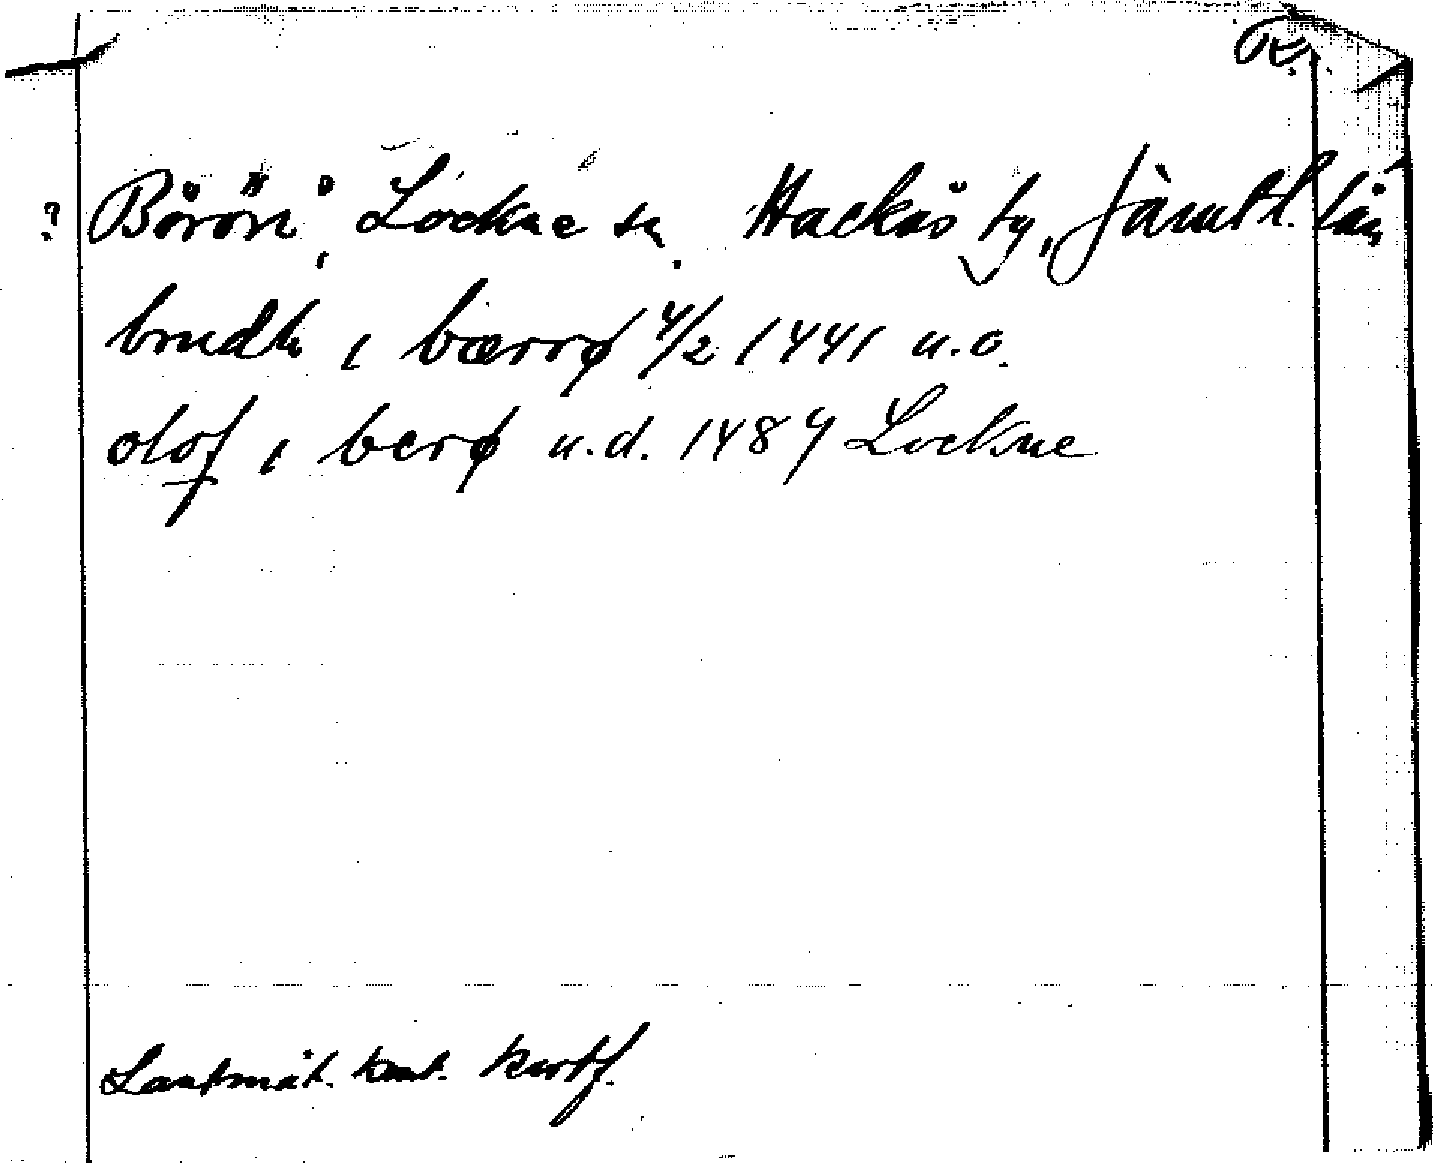 ? Börön, Lockne sn. Hackås tg, Jämtl. län
brudh i bærrø 4/2 1441 u.o.
olof i berø u.d. 1484 Lockne
Lantmät. kont. kartf.